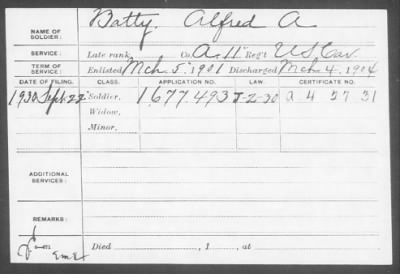 NAME OF SOLDIER: Batty, Alfred A
SERVICE: Late rank, Co. A. 11" Reg't U.S. Cav.
TERM OF SERVICE: Enlisted Mch. 5" 1901 Discharged Mch. 4, 1904
DATE OF FILING. CLASS. APPLICATION NO. LAW. CERTIFICATE NO.
1930 Sept. 22" Soldier, 1,677,493 J-2-30 a 4 57 31
Widow,
Minor,
ADDITIONAL SERVICES:
REMARKS:
EME Died , 1 , at